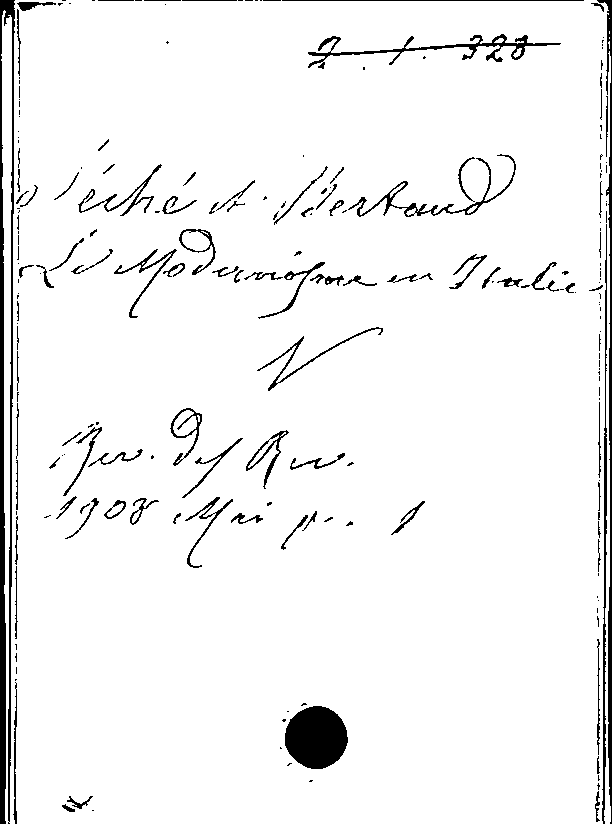 2. 1. 328
Péché et Bertaud
Le Modernisme en Italie
V
Rev. des Rev.
1908 Mai p. 1